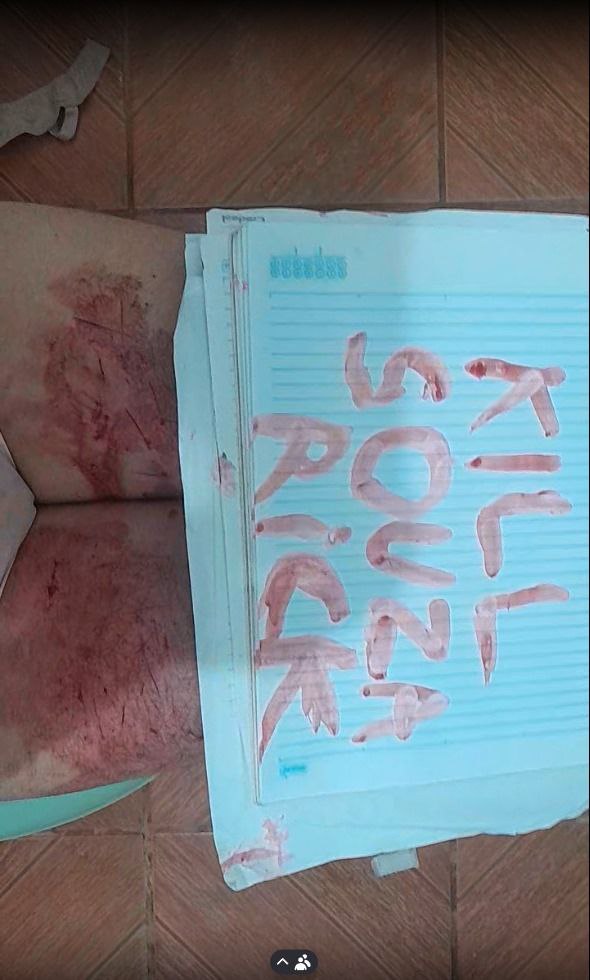 KILL
SOUZA
RICK